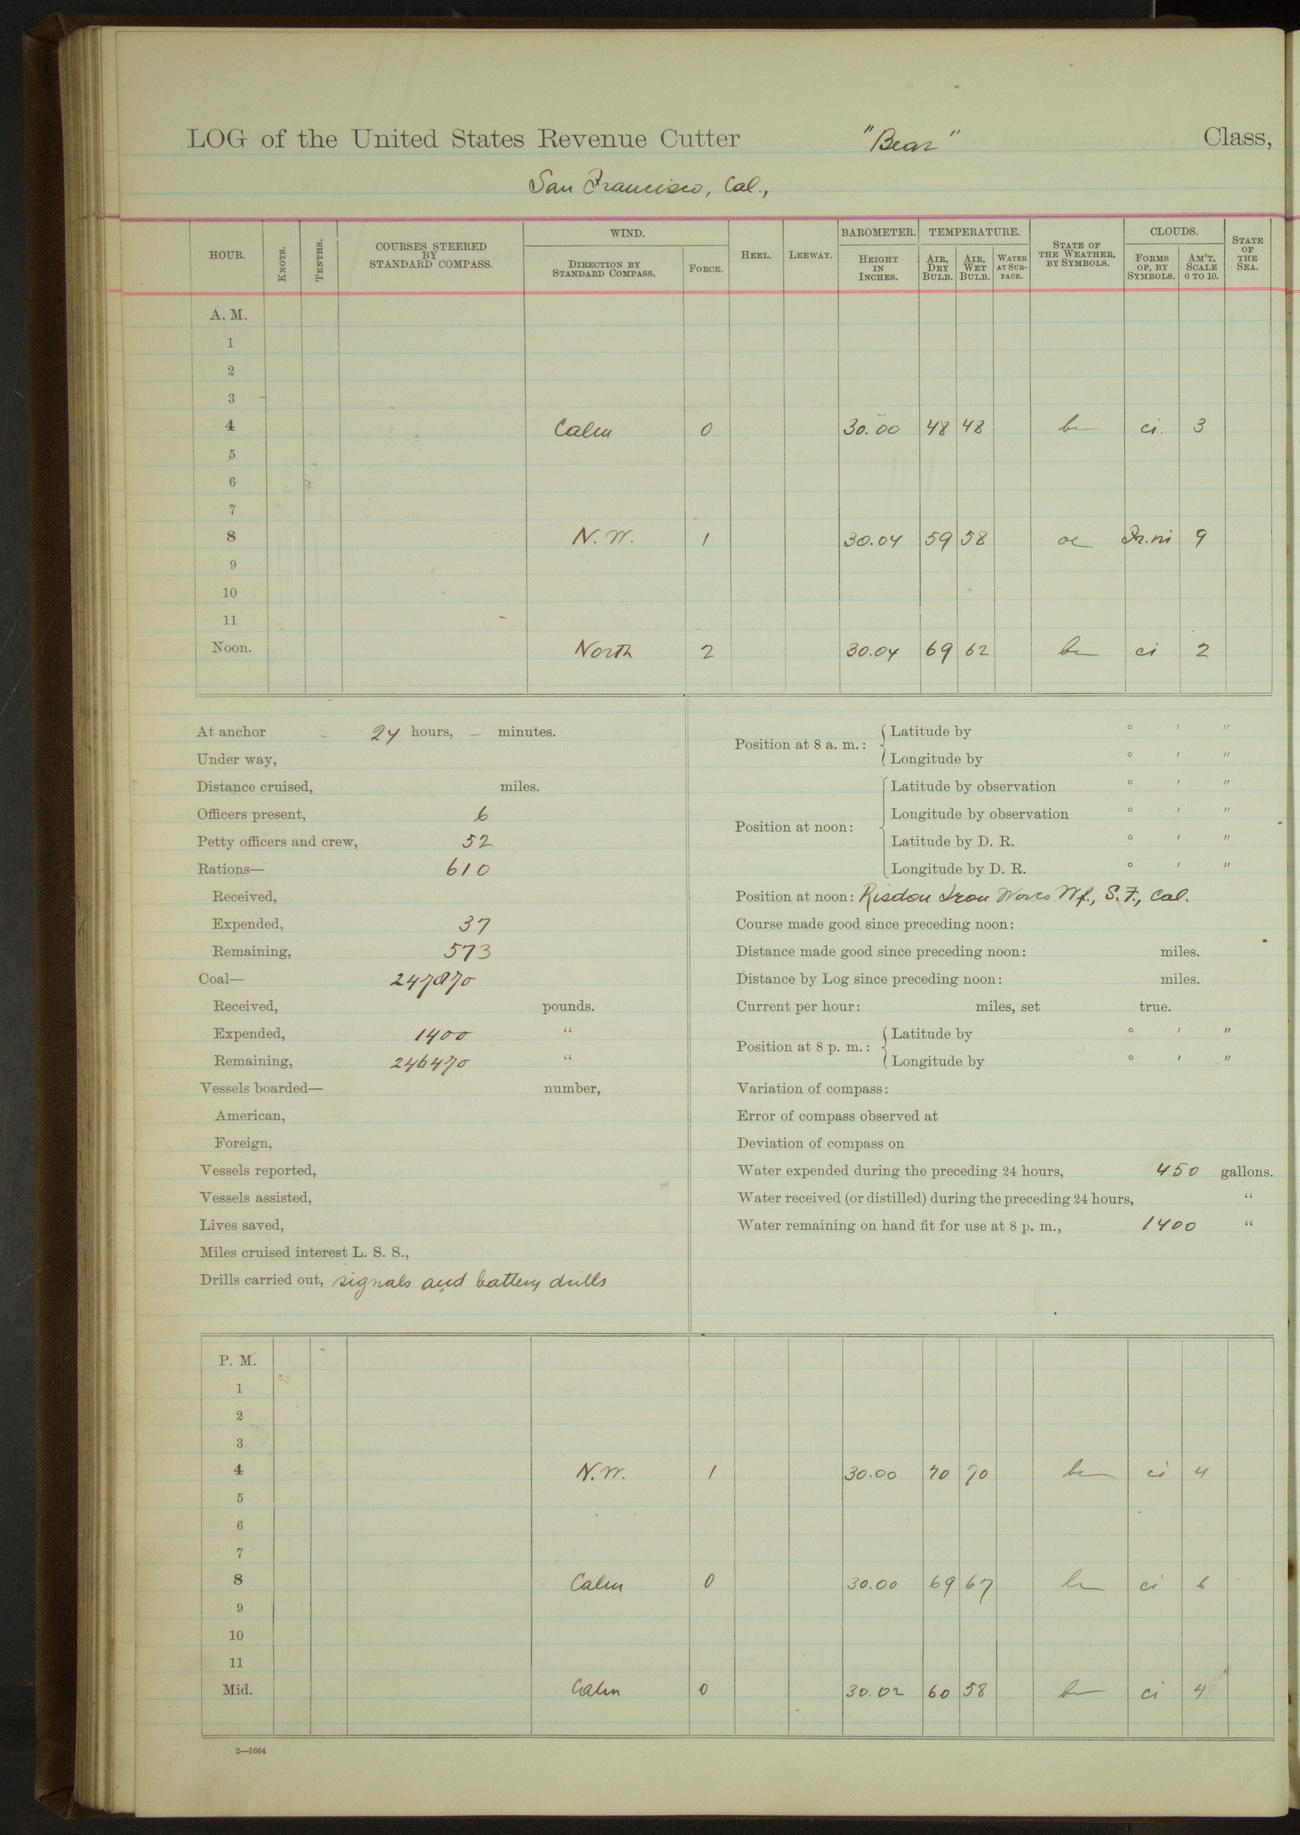 LOG of the United States Revenue Cutter "Bear" Class,
San Francisco, Cal.,
HOUR. KNOTS. TENTHS. COURSES STEERED BY STANDARD COMPASS. WIND. DIRECTION BY STANDARD COMPASS. FORCE. HEEL. LEEWAY. BAROMETER. HEIGHT IN INCHES. TEMPERATURE. AIR, DRY BULB. AIR, WET BULB. WATER AT SURFACE. STATE OF THE WEATHER, BY SYMBOLS. CLOUDS. FORMS OF, BY SYMBOLS. AM'T, SCALE 0 TO 10. STATE OF THE SEA.
A. M.
1
2
3
4 Calm 0 30.00 48 48 bc ci. 3
5
6
7
8 N.W. 1 30.04 59 58 oc Fr.ni 9
9
10
11
Noon. North 2 30.04 69 62 bc ci 2
At anchor 24 hours, – minutes.
Under way,
Distance cruised, miles.
Officers present, 6
Petty officers and crew, 52
Rations— 610
Received,
Expended, 37
Remaining, 573
Coal— 247870
Received, pounds.
Expended, 1400 "
Remaining, 246470 "
Vessels boarded— number,
American,
Foreign,
Vessels reported,
Vessels assisted,
Lives saved,
Miles cruised interest L. S. S.,
Drills carried out, signals and battery drills
Position at 8 a. m.: Latitude by ° ′ ″
Longitude by ° ′ ″
Position at noon: Latitude by observation ° ′ ″
Longitude by observation ° ′ ″
Latitude by D. R. ° ′ ″
Longitude by D. R. ° ′ ″
Position at noon: Risdon Iron Works Wf., S. F., Cal.
Course made good since preceding noon:
Distance made good since preceding noon: miles.
Distance by Log since preceding noon: miles.
Current per hour: miles, set true.
Position at 8 p. m.: Latitude by ° ′ ″
Longitude by ° ′ ″
Variation of compass:
Error of compass observed at
Deviation of compass on
Water expended during the preceding 24 hours, 450 gallons.
Water received (or distilled) during the preceding 24 hours, "
Water remaining on hand fit for use at 8 p. m., 1400 "
P. M.
1
2
3
4 N.W. 1 30.00 70 70 bc ci 4
5
6
7
8 Calm 0 30.00 69 67 bc ci 6
9
10
11
Mid. Calm 0 30.02 60 58 bc ci 4
2—1664